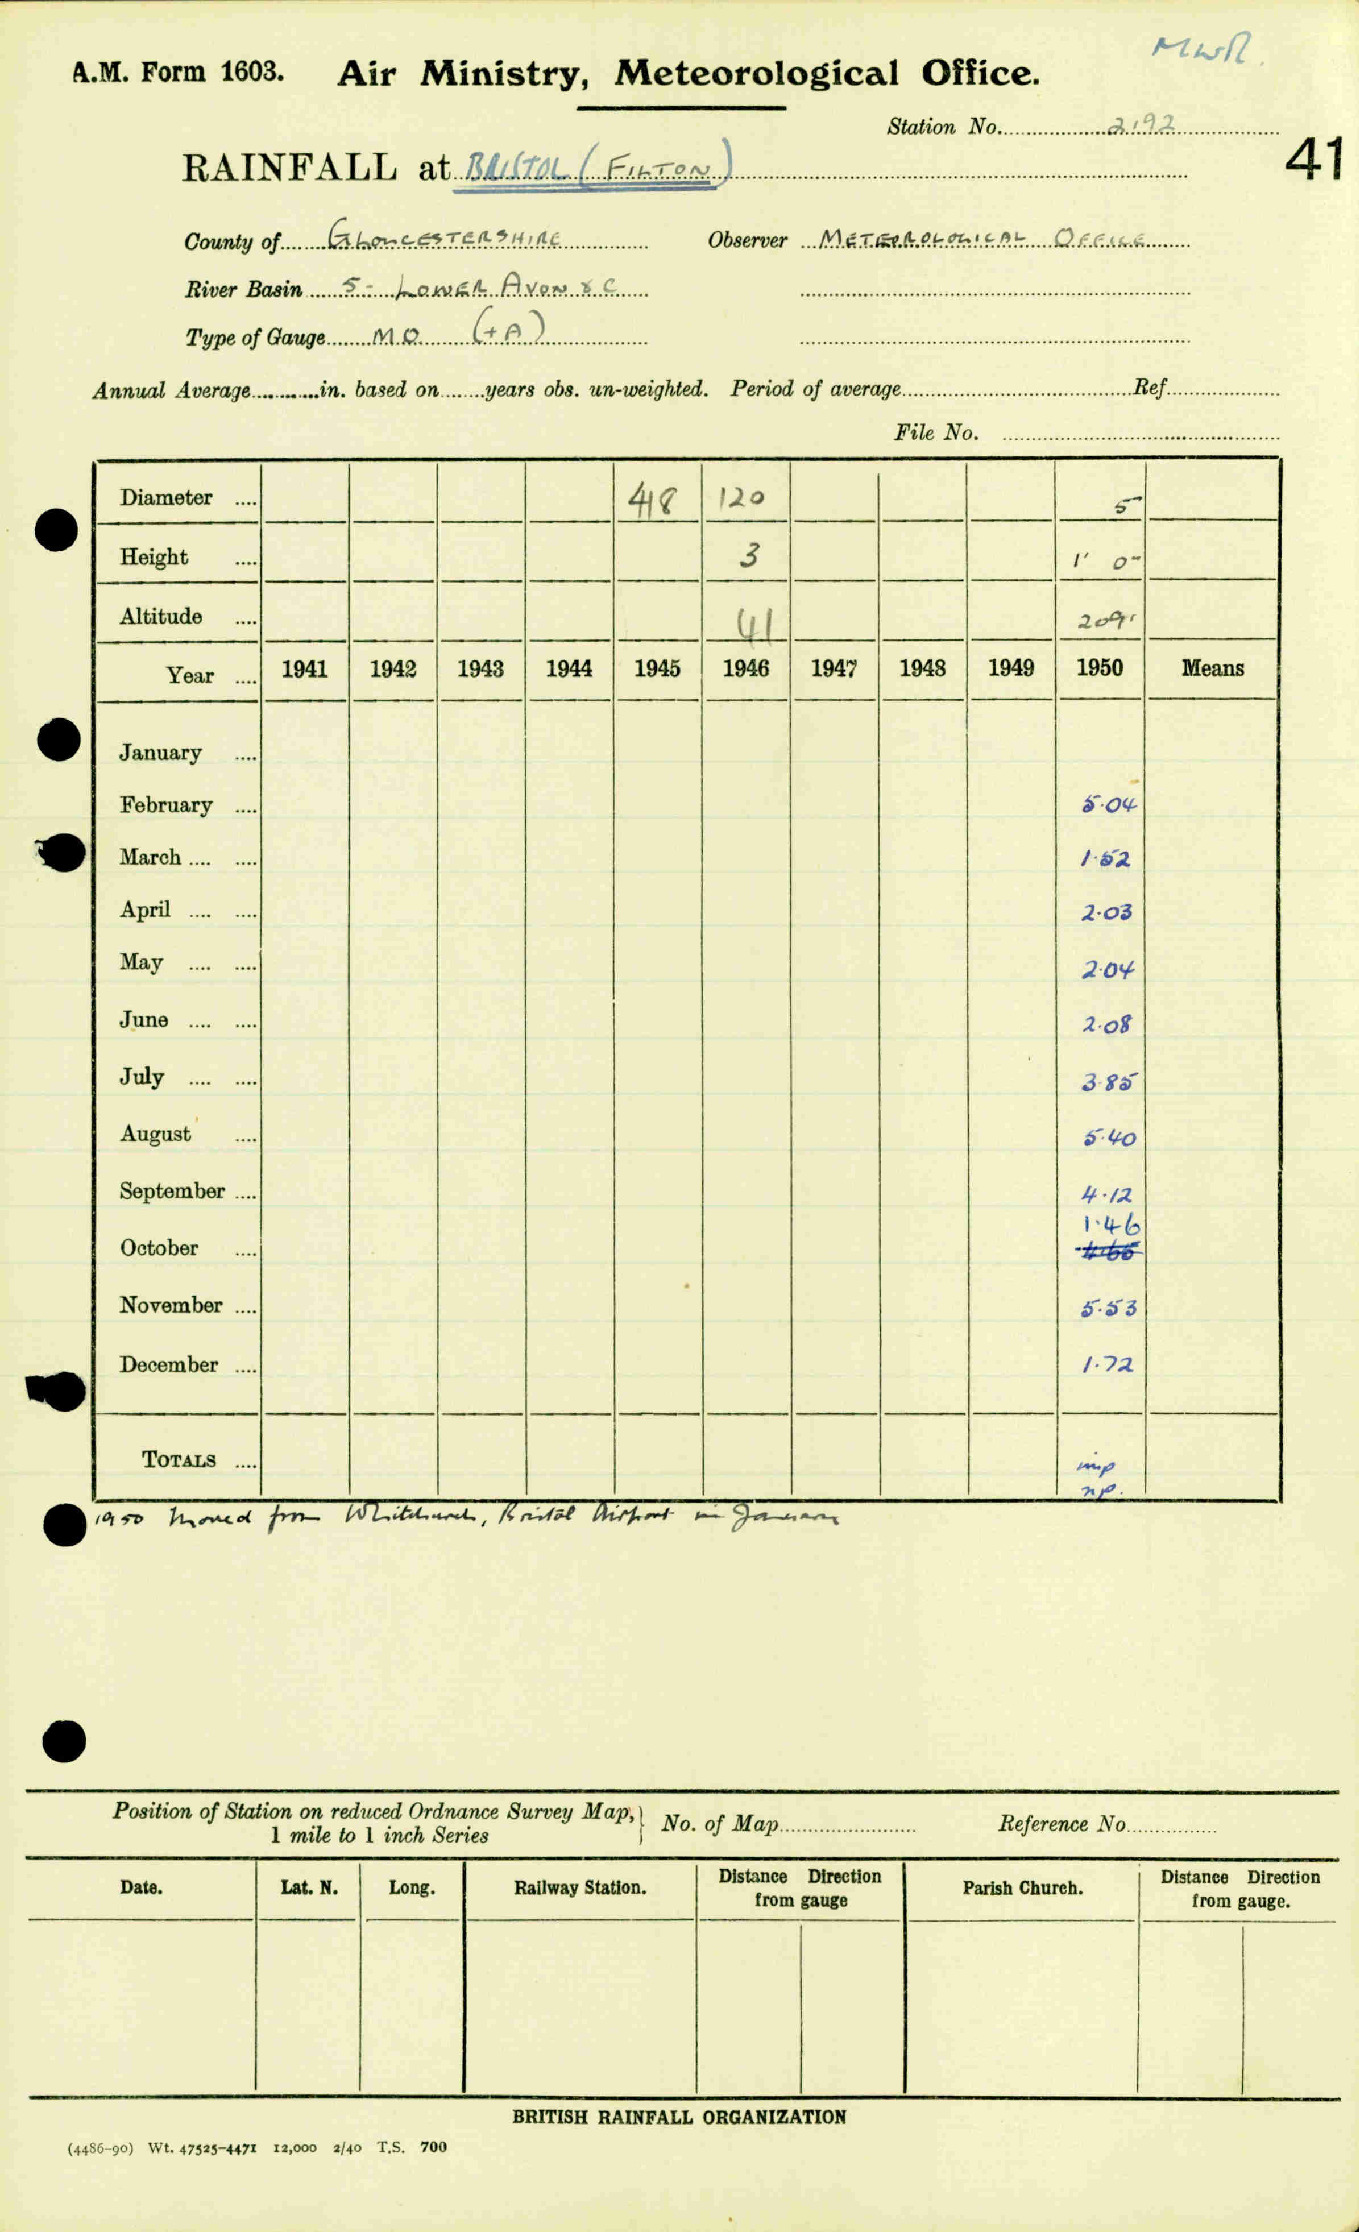 MWR.
A.M. Form 1603. Air Ministry, Meteorological Office.
Station No. 2192
41
RAINFALL at BRISTOL (FILTON)
County of GLOUCESTERSHIRE Observer METEOROLOGICAL OFFICE
River Basin 5- LOWER AVON & C
Type of Gauge MO (+A)
Annual Average in. based on years obs. un-weighted. Period of average Ref
File No.
Diameter 418 120 5
Height 3 1' 0"
Altitude 41 209'
Year 1941 1942 1943 1944 1945 1946 1947 1948 1949 1950 Means
January
February 5.04
March 1.52
April 2.03
May 2.04
June 2.08
July 3.85
August 5.40
September 4.12
1.46
October
November 5.53
December 1.72
TOTALS imp
np.
1950 Moved from Whitchurch, Bristol Airport in January
Position of Station on reduced Ordnance Survey Map, No. of Map Reference No.
1 mile to 1 inch Series
Date. Lat. N. Long. Railway Station. Distance Direction from gauge Parish Church. Distance Direction from gauge.
BRITISH RAINFALL ORGANIZATION
(4486-90) Wt. 47525-4471 12,000 2/40 T.S. 700